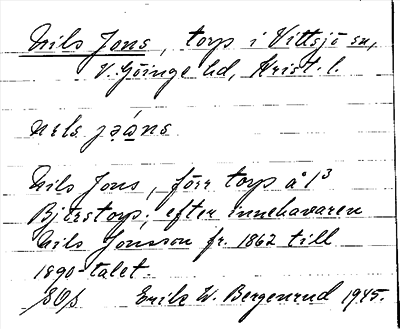 Nils Jons, torp i Vittsjö sn,
V. Göinge hd, Krist. l.
nɛls jɑ̀ɑ́ns
Nils Jons, förr torp å 1/3
Bjärstorp; efter innehavaren
Nils Jonsson fr. 1862 till
1890-talet.
Erik W. Bergenrud 1945.